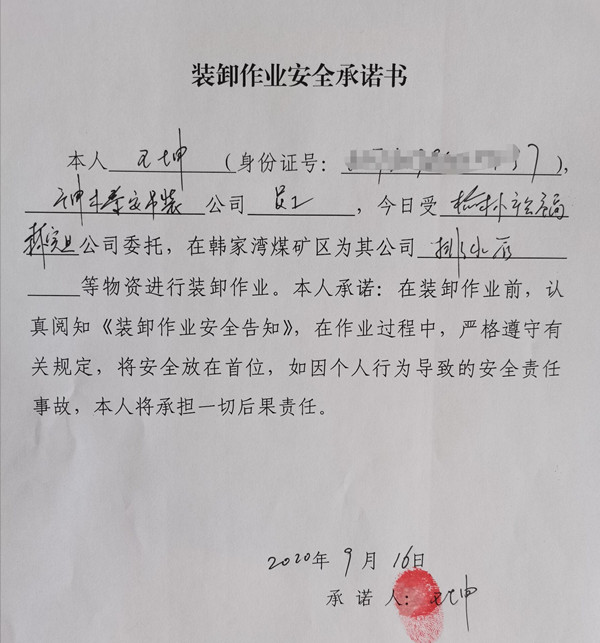 装卸作业安全承诺书
本人 王坤 (身份证号: 37),
神木泰安吊装公司 员工 ,今日受 榆林
公司委托,在韩家湾煤矿区为其公司 排水
等物资进行装卸作业。本人承诺:在装卸作业前,认
真阅知《装卸作业安全告知》,在作业过程中,严格遵守有
关规定,将安全放在首位,如因个人行为导致的安全责任
事故,本人将承担一切后果责任。
2020年9月16日
承诺人:王坤